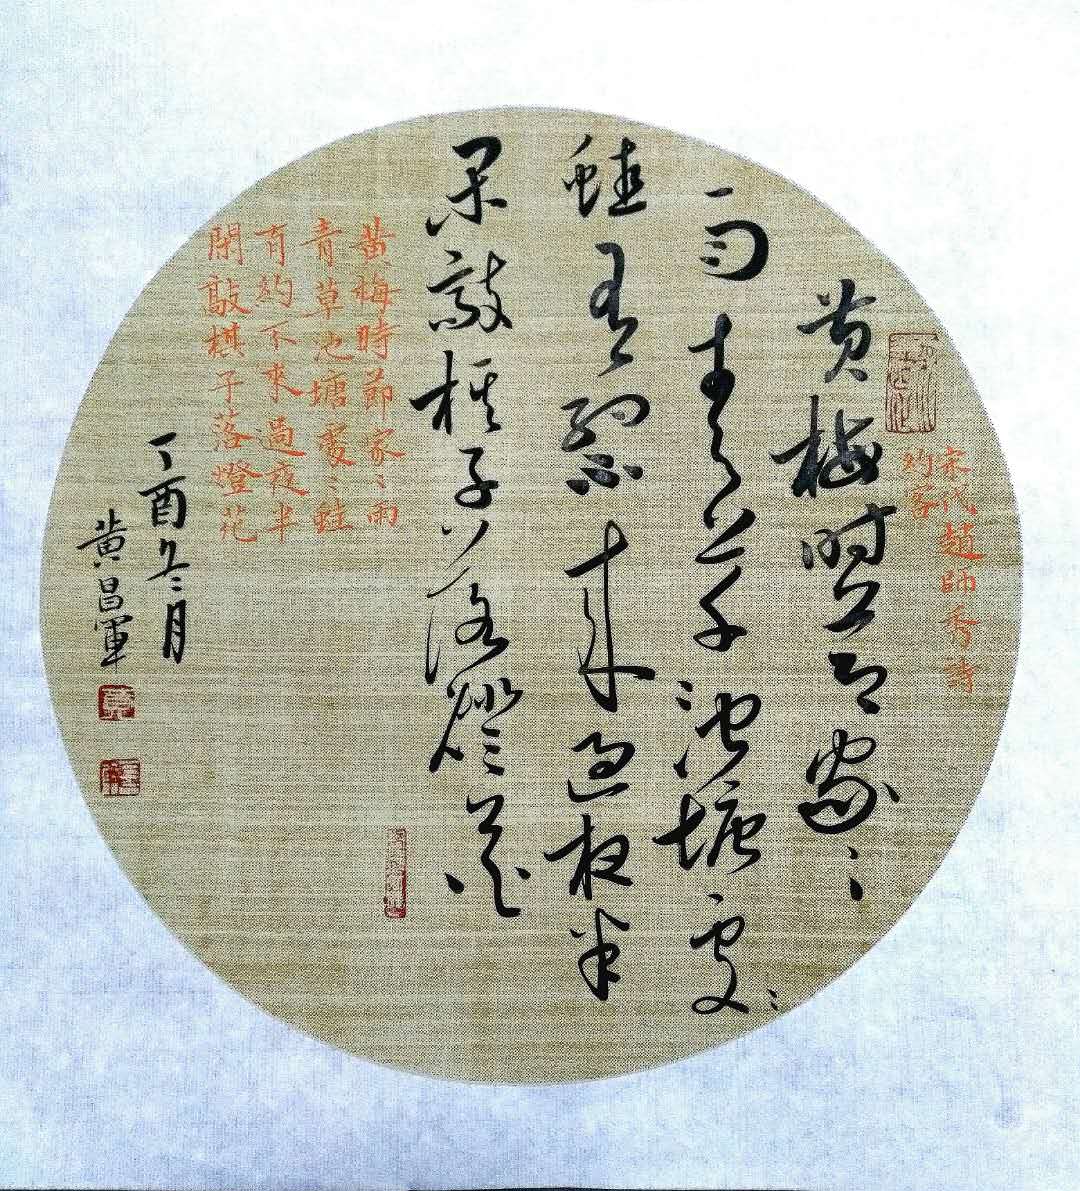 宋代趙師秀詩
約客
黄梅時節家〻
雨青草池塘處〻
蛙有約不來過夜半
閑敲棋子落燈花
黄梅時節家〻雨
青草池塘處〻蛙
有約不來過夜半
閑敲棋子落燈花
丁酉冬月
黄昌軍